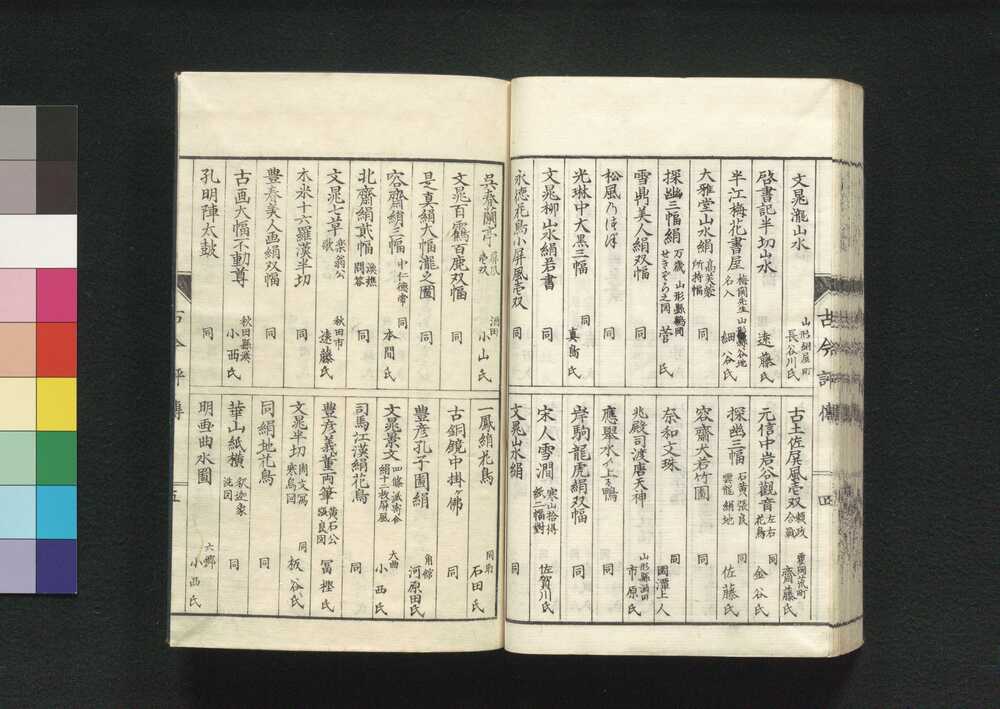 文晁瀧山水 山形銅屋町 長谷川氏
啓書記半切山水 遠藤氏
半江梅花書屋 梅関先生名入 山形縣谷地 細谷氏
大雅堂山水絹 高芙蓉所持幅 同
探幽三幅絹 万歳 せきぞろ之図 山形縣鶴岡 菅氏
雪鼎美人絹双幅 同
松風乃 同
光琳中大黒三幅 同 真島氏
文晁柳山水絹若書 同
永徳花鳥小屏風壱双 同
古土佐屏風壱双 頼政合戦 齋藤氏
元信中岩谷觀音 左右花鳥 同 金谷氏
探幽三幅 石黄張良 雲龍絹地 同 佐藤氏
容齋犬若竹圖 同
奈和文珠 同 國澤上人
兆殿司渡唐天神 山形縣酒田 市原氏
應擧水ノ上ミ鴨 同
岸駒龍虎絹双幅 同
宋人雪澗 寒山拾得 紙二幅對 佐賀川氏
文晁山水絹 同
古今評傳 四
呉春蘭亭 屏風壱双 酒田 小山氏
文晁百鶴百鹿双幅 同
是真絹大幅瀧之圖 同
容齋絹三幅 中仁徳帝 同 本間氏
北齋絹貳幅 漁樵問答 同
文晁七草 楽翁公歌 秋田市 遠藤氏
木米十六羅漢半切 同
豊春美人画絹双幅 同
古画大幅不動尊 秋田縣湊 小西氏
孔明陣太鼓 同
一鳳絹花鳥 同所 石田氏
古銅鏡中掛ヶ佛 同
豊彦孔子圖絹 角館 河原田氏
文晁景文 四條誠寄合 絹十二枚屏風 大曲 小西氏
司馬江漢絹花鳥 同
豊彦義董両筆 黄石公張良図 冨樫氏
文晁半切 周文寫寒鳥図 同 板谷氏
同絹地花鳥 同
華山紙横 釈迦象洗図 同
明画曲水圖 六郷 小西氏
古今評傳 五